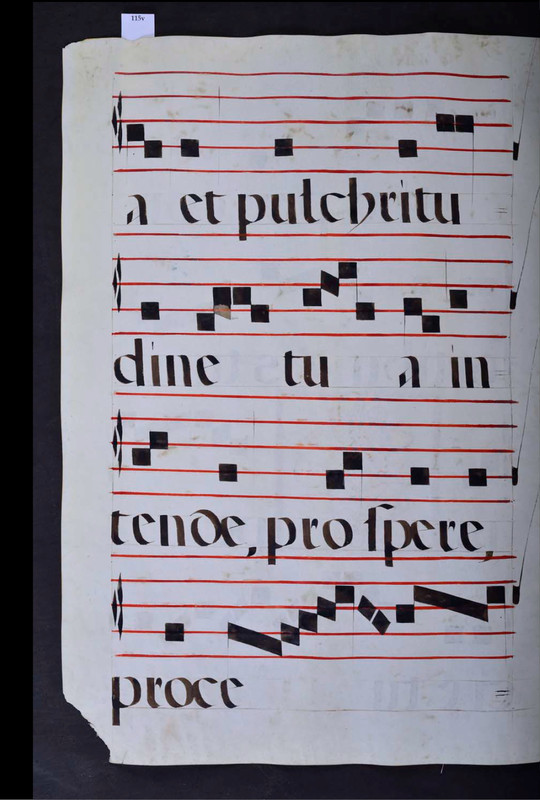 115v
a et pulchritu
dine tu a in
tende, pro ſpere,
proce